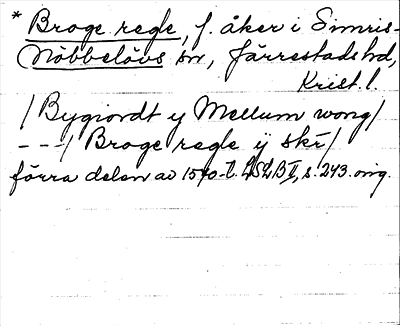 * Broge regle, f. åker i Simris-
Nöbbelövs sn, Järrestads hd,
Krist. l.
/ Bygiordt y Mellum wong /
- - - / Broge regle ÿ skr /
förra delen av 1500-t. s. 243. orig.